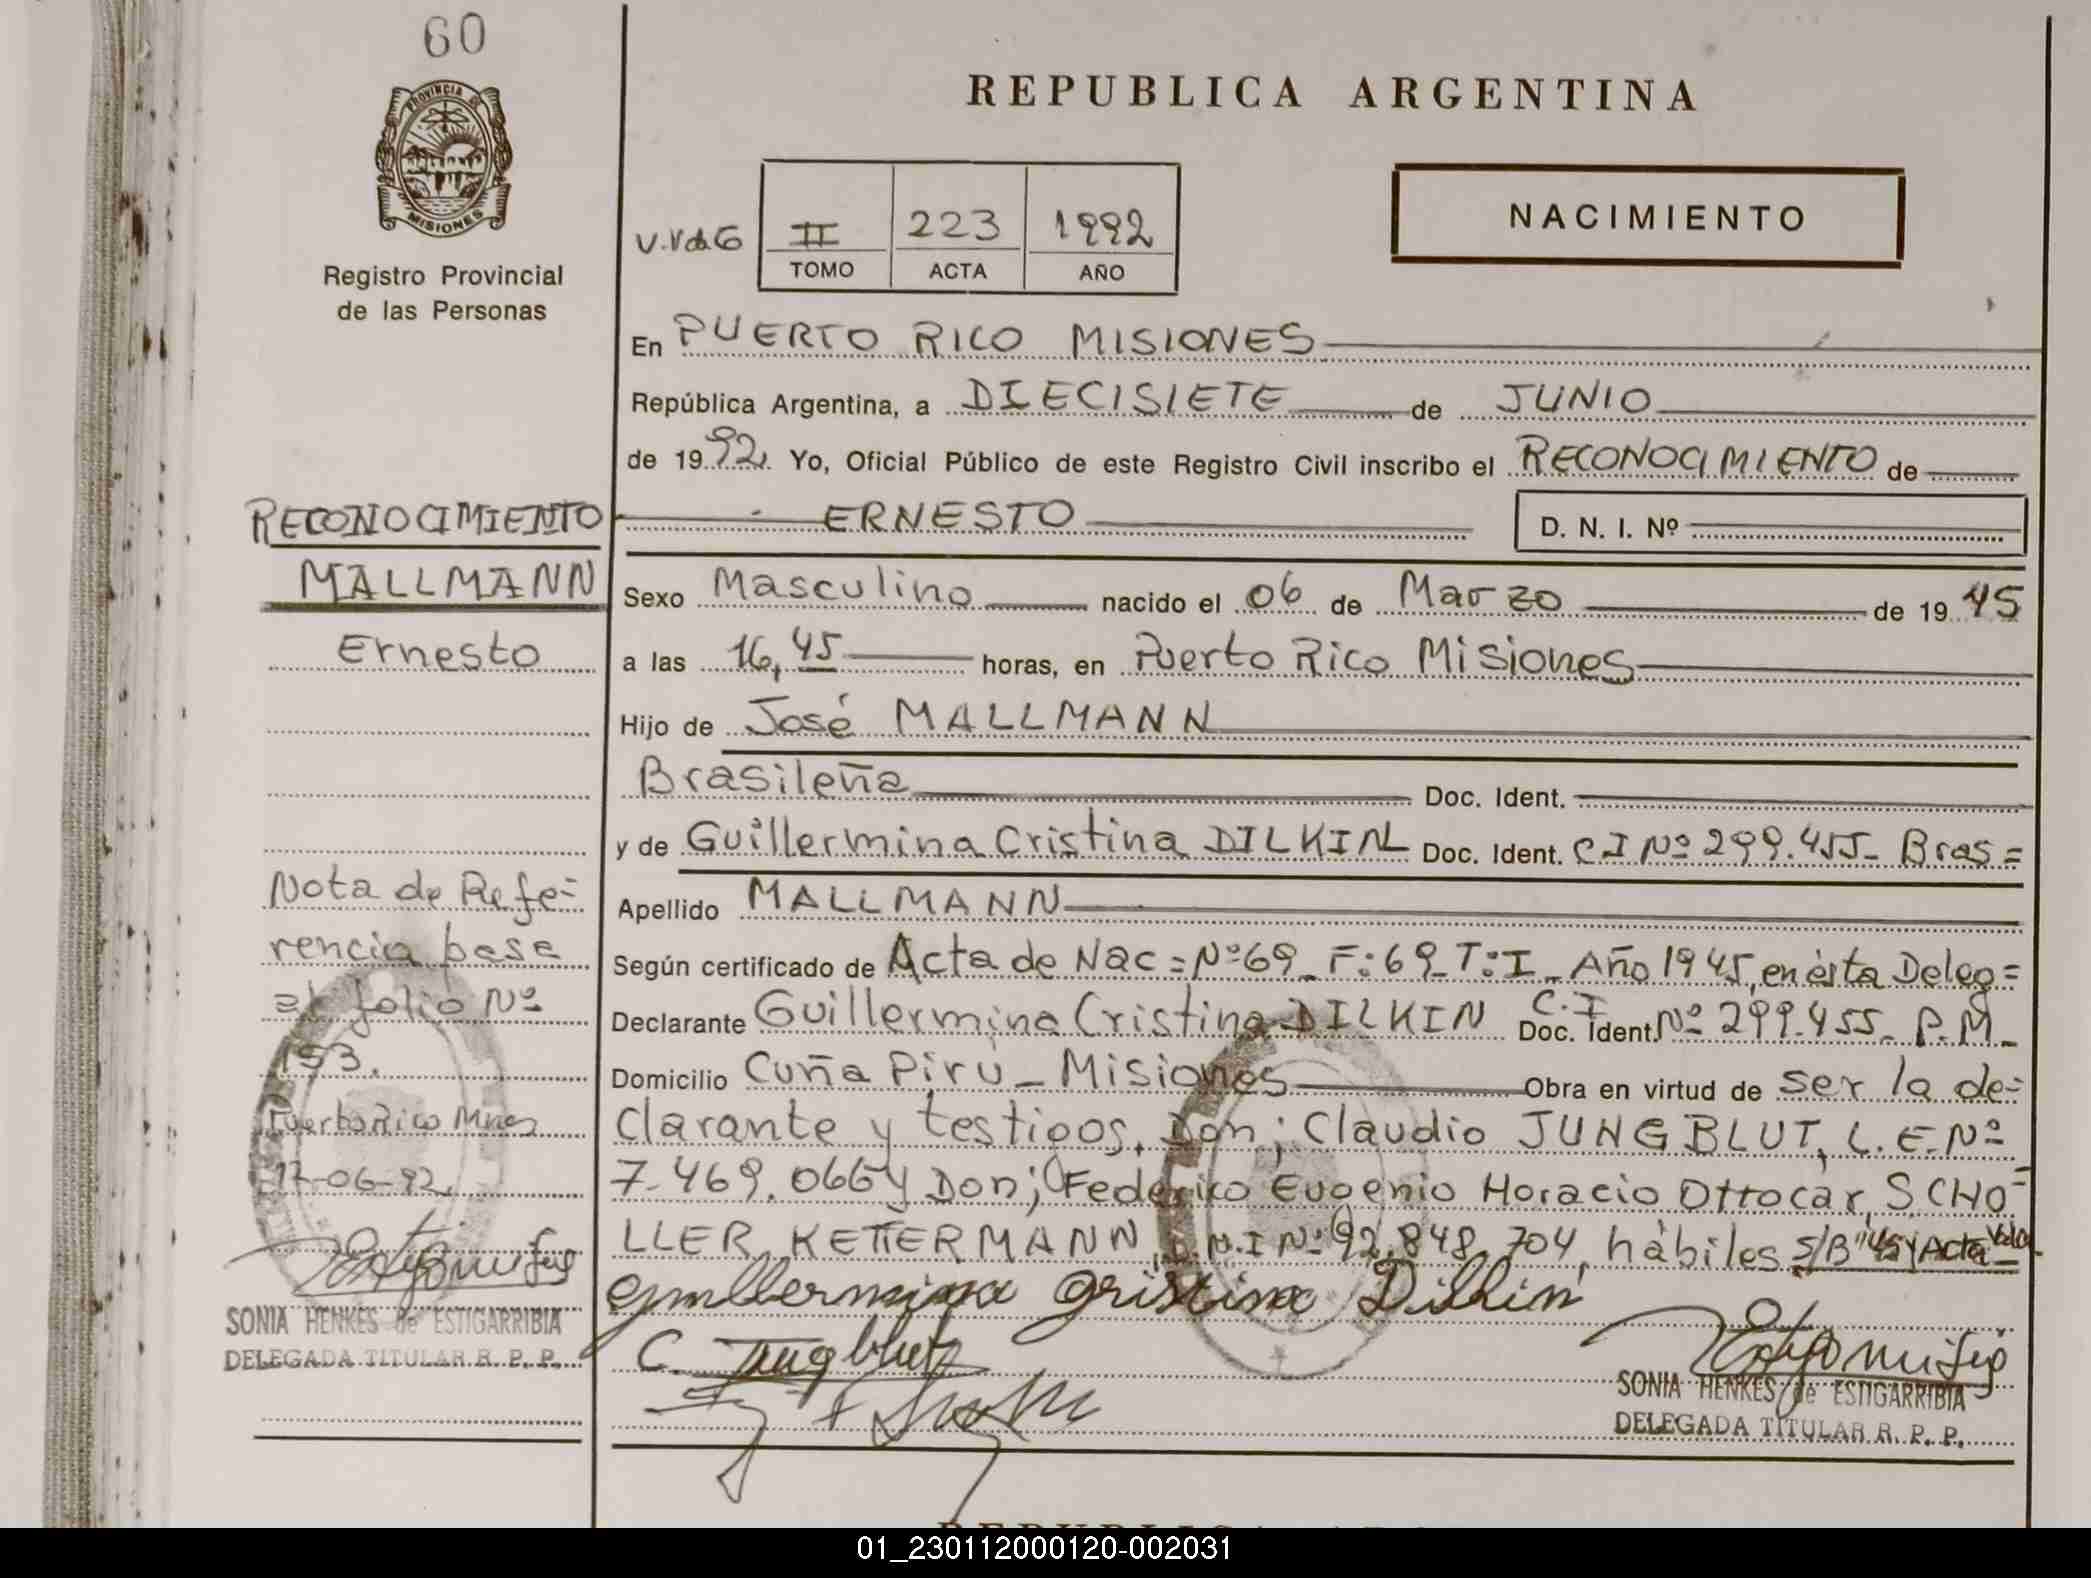 60
PROVINCIA DE
MISIONES
Registro Provincial
de las Personas
REPUBLICA ARGENTINA
NACIMIENTO
II 223 1992
TOMO ACTA AÑO
En PUERTO RICO MISIONES
República Argentina, a DIECISIETE de JUNIO
de 1992. Yo, Oficial Público de este Registro Civil inscribo el RECONOCIMIENTO de
ERNESTO D. N. I. Nº
Sexo Masculino nacido el 06 de Marzo de 1945
a las 16,45 horas, en Puerto Rico Misiones
Hijo de José MALLMANN
Brasileña Doc. Ident.
y de Guillermina Cristina DILKIN Doc. Ident. C I Nº 299.455- Bras=
Apellido MALLMANN
Según certificado de Acta de Nac=Nº69_F:69_T:I_Año 1945, en ésta Deleg=
Declarante Guillermina Cristina DILKIN C.I Doc. Ident. Nº 299.455- P.M_
Domicilio Cuña Pirú_Misiones Obra en virtud de ser la de=
clarante y testigos, Don; Claudio JUNGBLUT, L.E.Nº
7.469.066 y Don; Federico Eugenio Horacio Ottocar SCHO=
LLER KETTERMANN, D.N.I Nº 92.848.704, hábiles S/B "45 y Acta" Vale_
Guillermina Cristina Dilkin
C. Jungblut
SONIA HENKES de ESTIGARRIBIA
DELEGADA TITULAR R. P. P.
RECONOCIMIENTO
MALLMANN
Ernesto
Nota de Refe=
rencia pase
al folio Nº
153.
Puerto Rico Mnes
17-06-92
SONIA HENKES de ESTIGARRIBIA
DELEGADA TITULAR R. P. P.
01_230112000120-002031